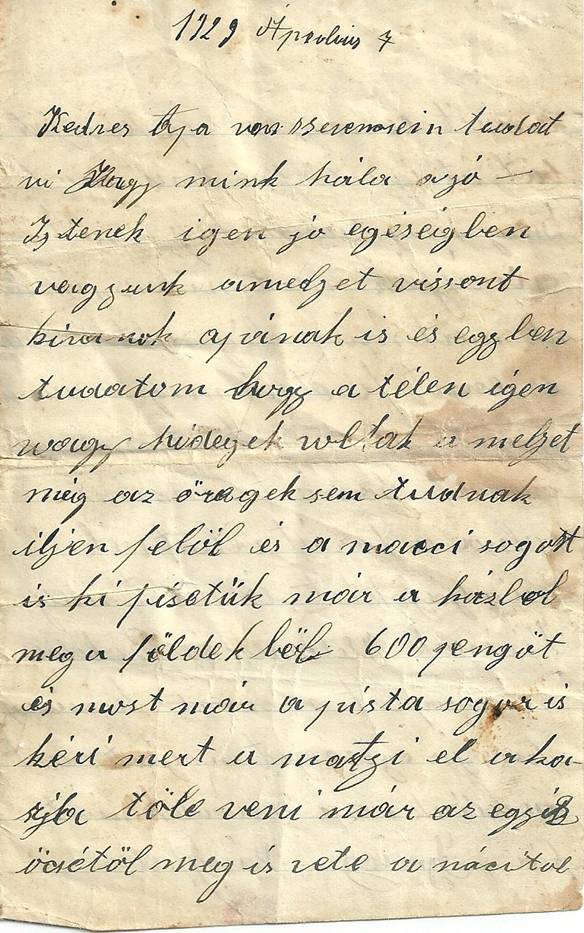 1929 Április 7
Kedves Apa tudat
ni Hogy mink hála a jó —
Istenek igen jó egéségben
vagyunk amelyet vissont
kivánok apának is és egyben
tudatom hogy a télen igen
nagy hidegek voltak a melyet
még az öregek sem tudnak
iljen felöl és a macci sogort
is ki fisetük már a házbol
meg a földek böl 600 pengöt
és most már a pista sogor is
kéri mert a el aka-
rja töle veni már az egyik
öcsétöl meg is vete a nácitol